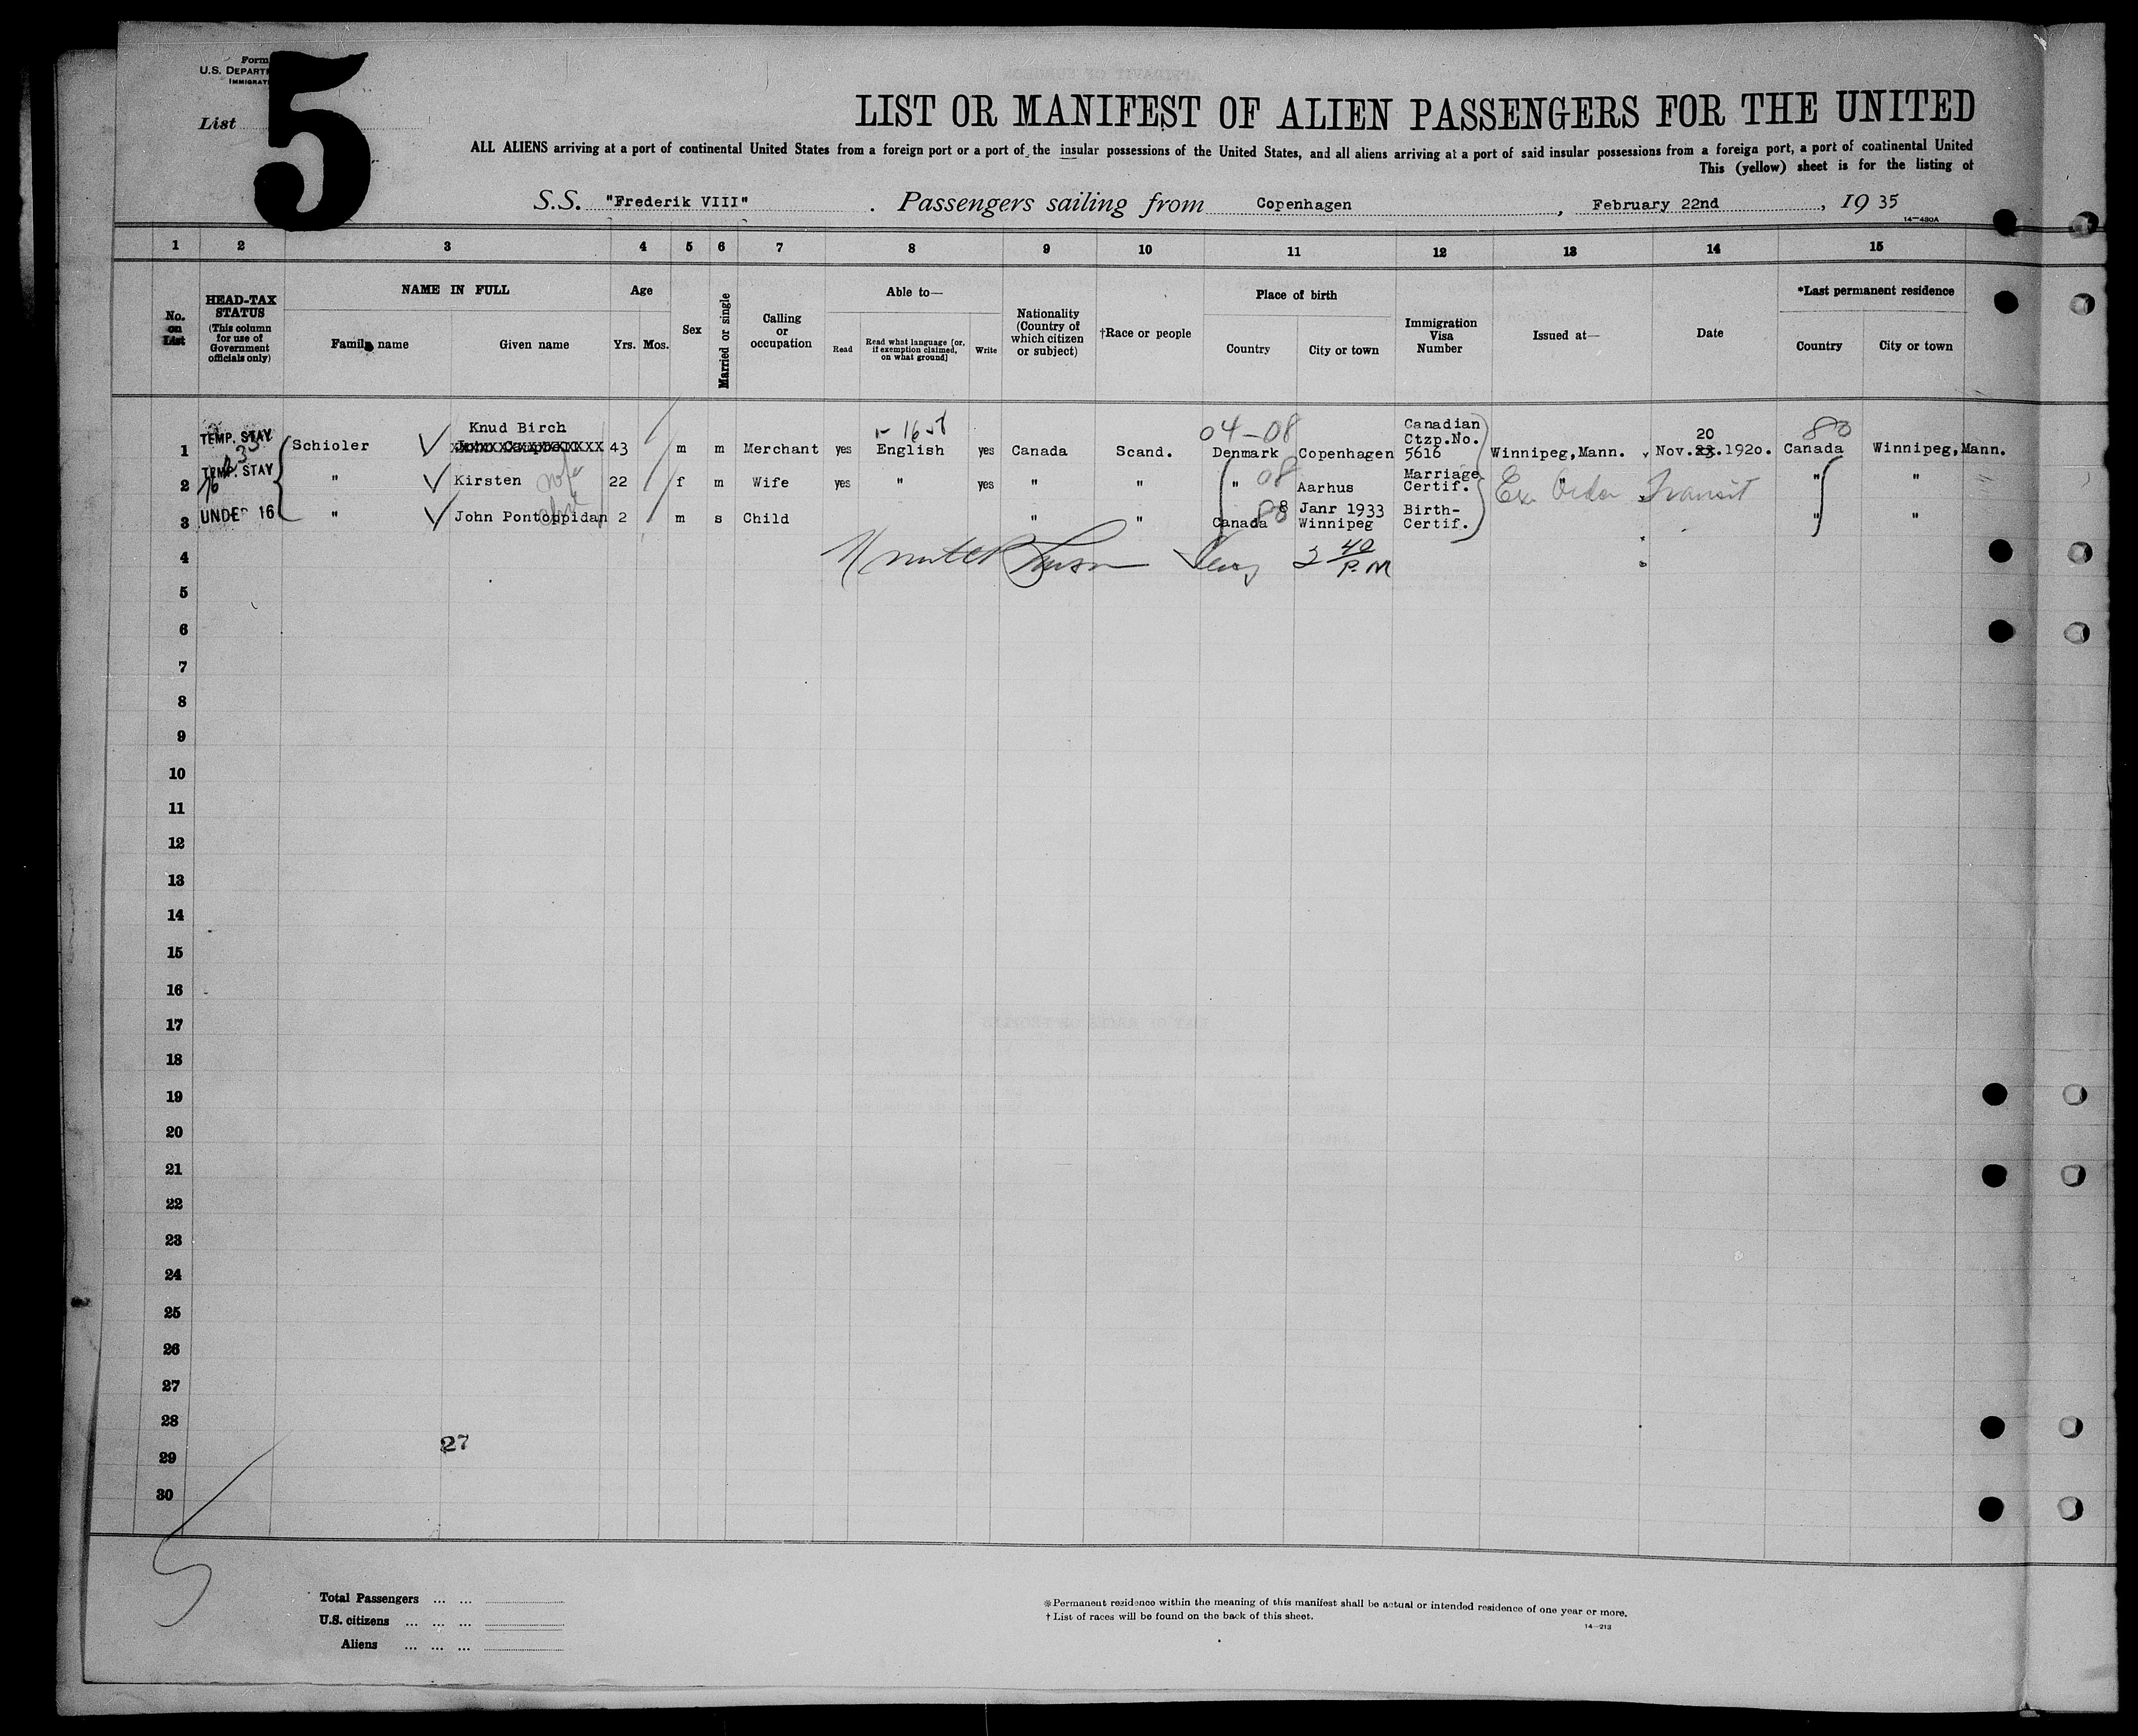 Form
U.S. DEPART
IMMIGRAT
List
5
LIST OR MANIFEST OF ALIEN PASSENGERS FOR THE UNITED
ALL ALIENS arriving at a port of continental United States from a foreign port or a port of the insular possessions of the United States, and all aliens arriving at a port of said insular possessions from a foreign port, a port of continental United
This (yellow) sheet is for the listing of
S.S. "Frederik VIII". Passengers sailing from Copenhagen, February 22nd, 19 35
14—430A
1 2 3 4 5 6 7 8 9 10 11 12 13 14 15
No. on List
HEAD-TAX STATUS (This column for use of Government officials only)
NAME IN FULL
Family name Given name
Age
Yrs. Mos.
Sex
Married or single
Calling or occupation
Able to—
Read Read what language [or, if exemption claimed, on what ground] Write
Nationality (Country of which citizen or subject)
†Race or people
Place of birth
Country City or town
Immigration Visa Number
Issued at—
Date
*Last permanent residence
Country City or town
Knud Birch 04-08 Canadian 20 80
1 TEMP. STAY Schioler 43 m m Merchant yes English yes Canada Scand. Denmark Copenhagen Ctzp.No. 5616 Winnipeg,Mann. Nov. .1920. Canada Winnipeg,Mann.
2 TEMP. STAY " Kirsten wife 22 f m Wife yes " yes " " " 08 Aarhus Marriage Certif. " " "
Ex. Order Transit
3 UNDER 16 " John Pontoppidan 2 m s Child " " Canada 8 Janr 1933 Winnipeg Birth-Certif. " "
4 2 40 P.M
5
6
7
8
9
10
11
12
13
14
15
16
17
18
19
20
21
22
23
24
25
26
27
28
27
29
30
5
Total Passengers ... ...
U.S. citizens ... ... ...
Aliens ... ... ...
*Permanent residence within the meaning of this manifest shall be actual or intended residence of one year or more.
† List of races will be found on the back of this sheet.
14—213